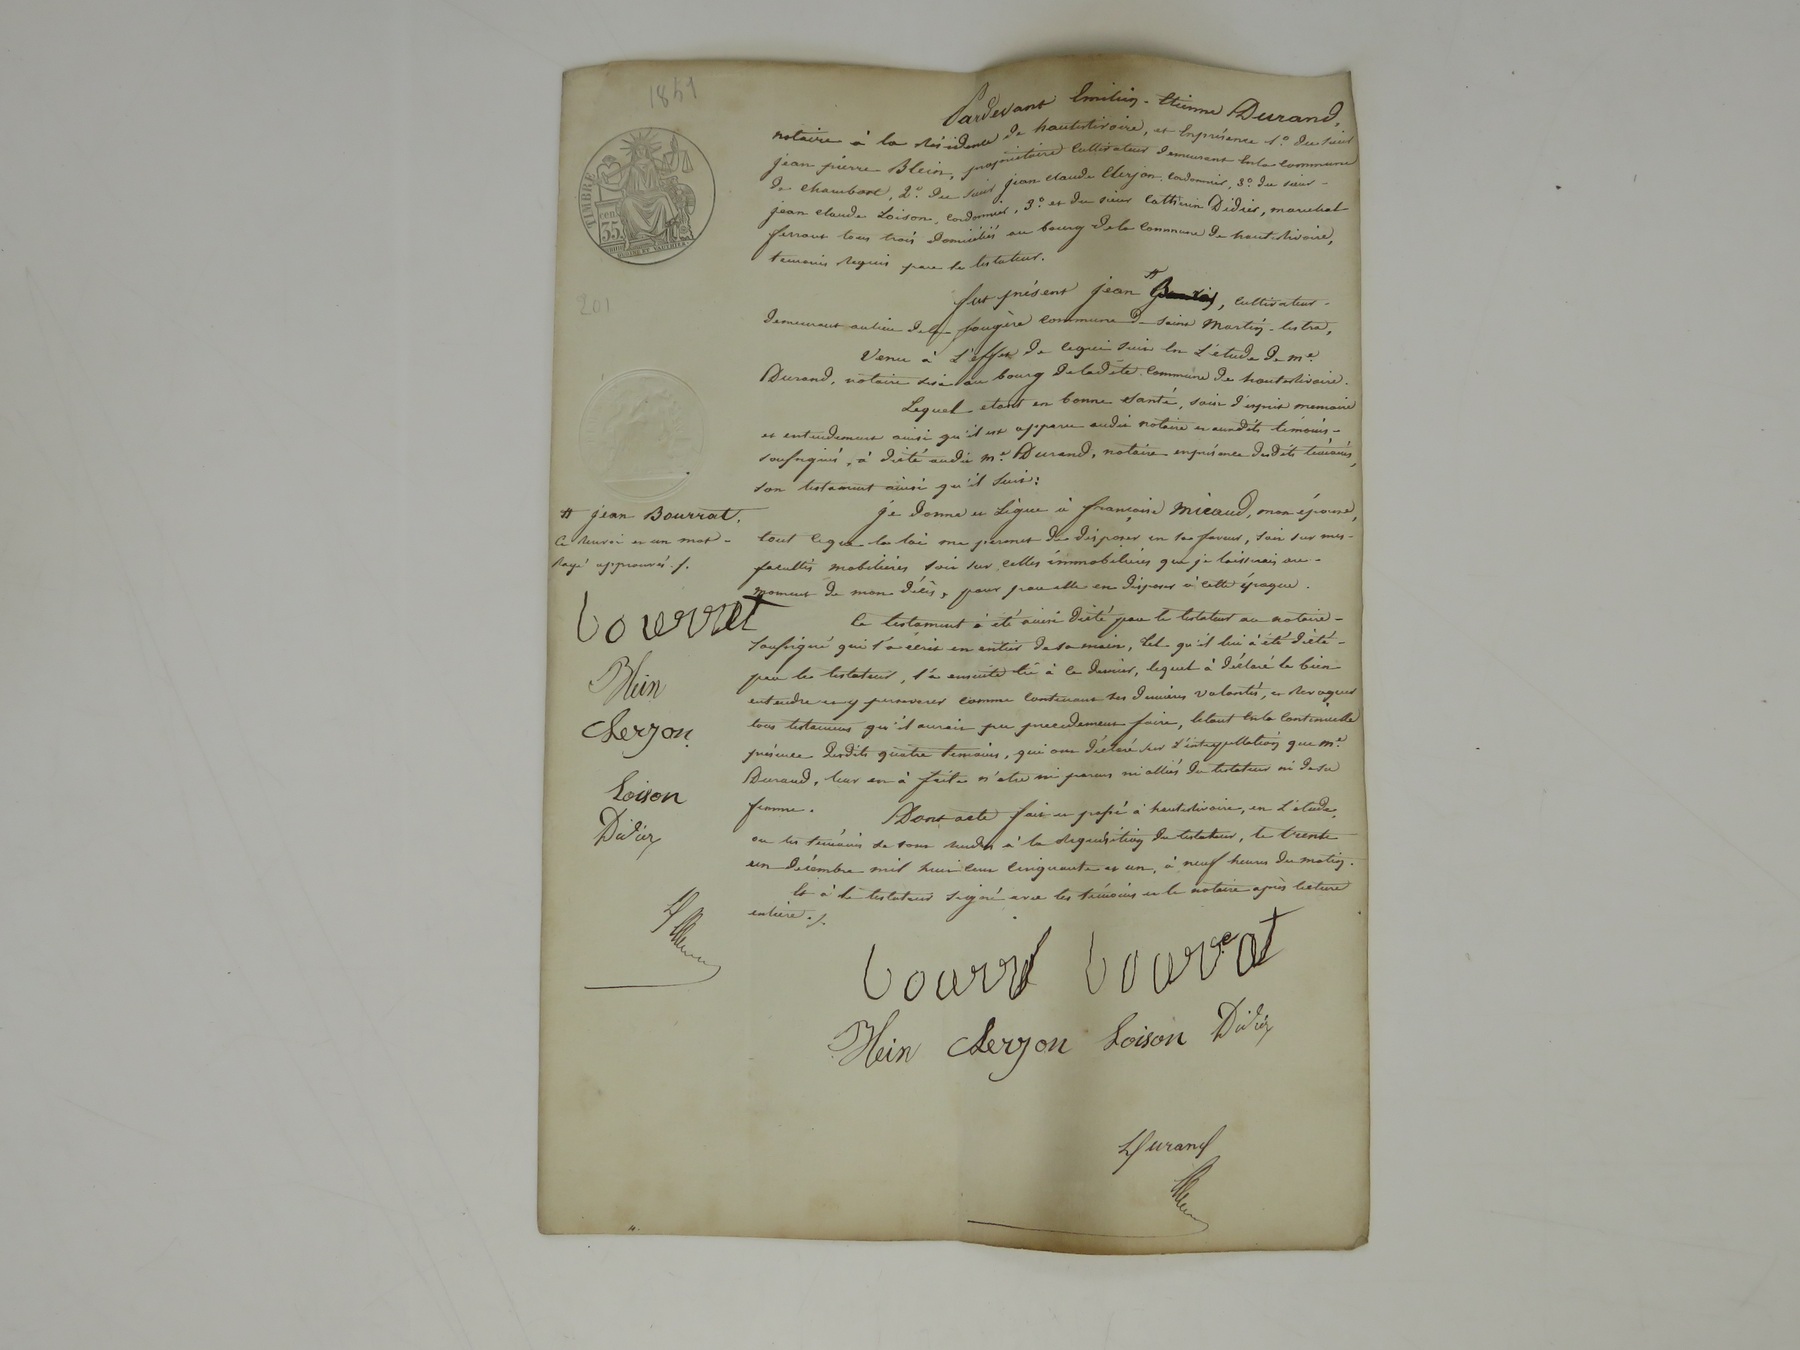 1851
TIMBRE
cent.
35.
201
Pardevant Emilien-Etienne Durand,
notaire à la résidence de hauterivoire, et En présence 1.º du sieur
jean pierre Blein, propriétaire cultivateur demeurant En la commune
de chambost, 2.º du sieur jean claude Clerjon, Cordonnier, 3.º du sieur
jean claude Loison, Cordonnier, 3.º et du sieur Didier, maréchal
ferrant tous trois domiciliés au bourg de la Commune de hauterivoire,
temoins requis par le testateur.
fut présent jean , cultivateur
demeurant au lieu de la fougère commune de saint Martin-lestra,
Venu à L'effet de cequi suit En L'étude de me
Durand, notaire sise au bourg de la dite Commune de hauterivoire.
Lequel etant en bonne santé, sain d'esprit memoire
et entendement ainsi qu'il est apparu audit notaire et auxdits témoins
soussignés, à dicté audit me Durand, notaire en présence desdits témoins,
son testament ainsi qu'il suit:
je donne et Lègue à françoise Micaud, mon épouse,
tout ceque la loi me permet de disposer en sa faveur, soit sur mes
facultés mobilières soit sur celles immobilières que je laisserais au
moment de mon décès, pour par elle en disposer à cette époque.
Ce testament à été ainsi dicté par le testateur au notaire
soussigné qui l'a écrit en entier de sa main, tel qu'il lui à été dicté
par le testateur, l'a ensuite lu à ce dernier, lequel à déclaré le bien
entendre et y perseverer comme contenant ses dernières volontés, et revoquer
tous testamens qu'il aurait pu precedemment faire, le tout En la continuelle
présence desdits quatre temoins, qui ont déclaré sur L'interpellation que me
Durand, leur en à faite n'etre ni parens ni alliés du testateur ni de sa
femme. Dont acte fait et passé à hauterivoire, en L'etude,
ou les témoins se sont rendus à la requisition du testateur, le trente
un décembre mil huit cent cinquante et un, à neuf heures du matin.
Et à le testateur signé avec les témoins et le notaire après lecture
entière ./.
# jean Bourrat.
Ce renvoi et un mot
rayé approuvés ./.
bourrat
Blein
Clerjon
Loison
Didier
bourrat
Blein Clerjon Loison Didier
Durand